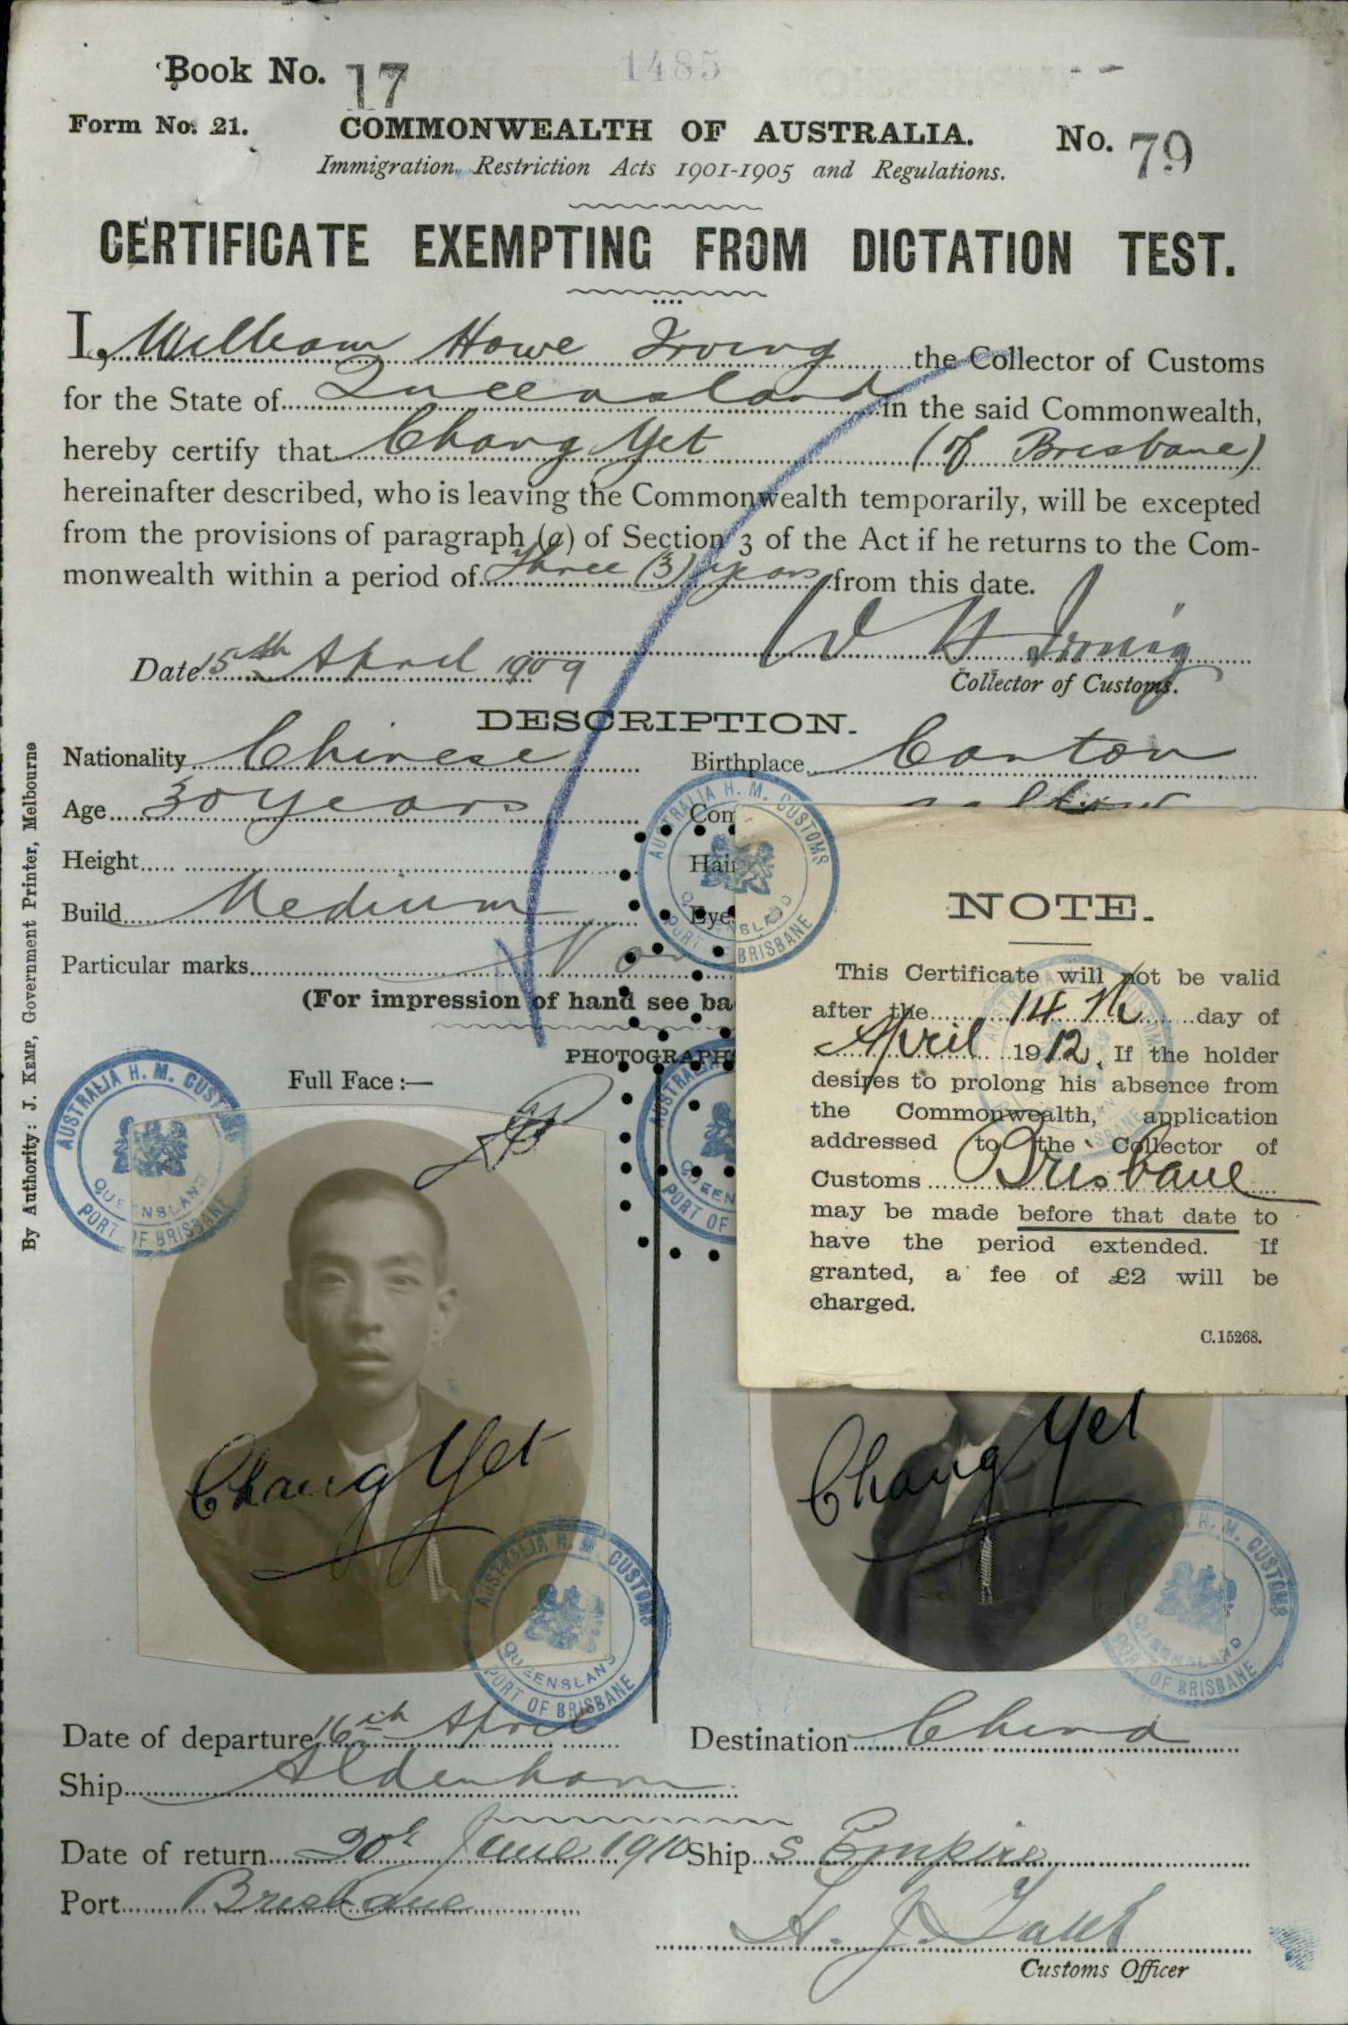 Book No. 17
1485
Form No. 21.
COMMONWEALTH OF AUSTRALIA.
No. 79
Immigration Restriction Acts 1901-1905 and Regulations.
CERTIFICATE EXEMPTING FROM DICTATION TEST.
I, William Howe Irving the Collector of Customs
for the State of Queensland in the said Commonwealth,
hereby certify that Chang Yet (of Brisbane)
hereinafter described, who is leaving the Commonwealth temporarily, will be excepted
from the provisions of paragraph (a) of Section 3 of the Act if he returns to the Com-
monwealth within a period of Three (3) years from this date.
W H Irving
Date 15th April 1909
Collector of Customs.
DESCRIPTION.
Nationality Chinese
Birthplace Canton
Age 30 years
Com
Height
Hair
Build Medium
Eye
Particular marks
(For impression of hand see ba
PHOTOGRAPH
Full Face :—
By Authority: J. KEMP, Government Printer, Melbourne
NOTE.
This Certificate will not be valid
after the 14th day of
April 1912. If the holder
desires to prolong his absence from
the Commonwealth, application
addressed to the Collector of
Customs Brisbane
may be made before that date to
have the period extended. If
granted, a fee of £2 will be
charged.
C.15268.
AUSTRALIA H. M. CUSTOMS
QUEENSLAND
PORT OF BRISBANE
AUSTRALIA H. M. CUSTOMS
QUEENSLAND
PORT OF BRISBANE
AUSTRALIA
QUEEN
PORT OF
Chang Yet
Chang Yet
AUSTRALIA H. M. CUSTOMS
QUEENSLAND
PORT OF BRISBANE
H. M. CUSTOMS
QUEENSLAND
PORT OF BRISBANE
Date of departure 16th April
Destination China
Ship Aldenham
Date of return 20th June 1910
Ship S Empire
Port Brisbane
Customs Officer